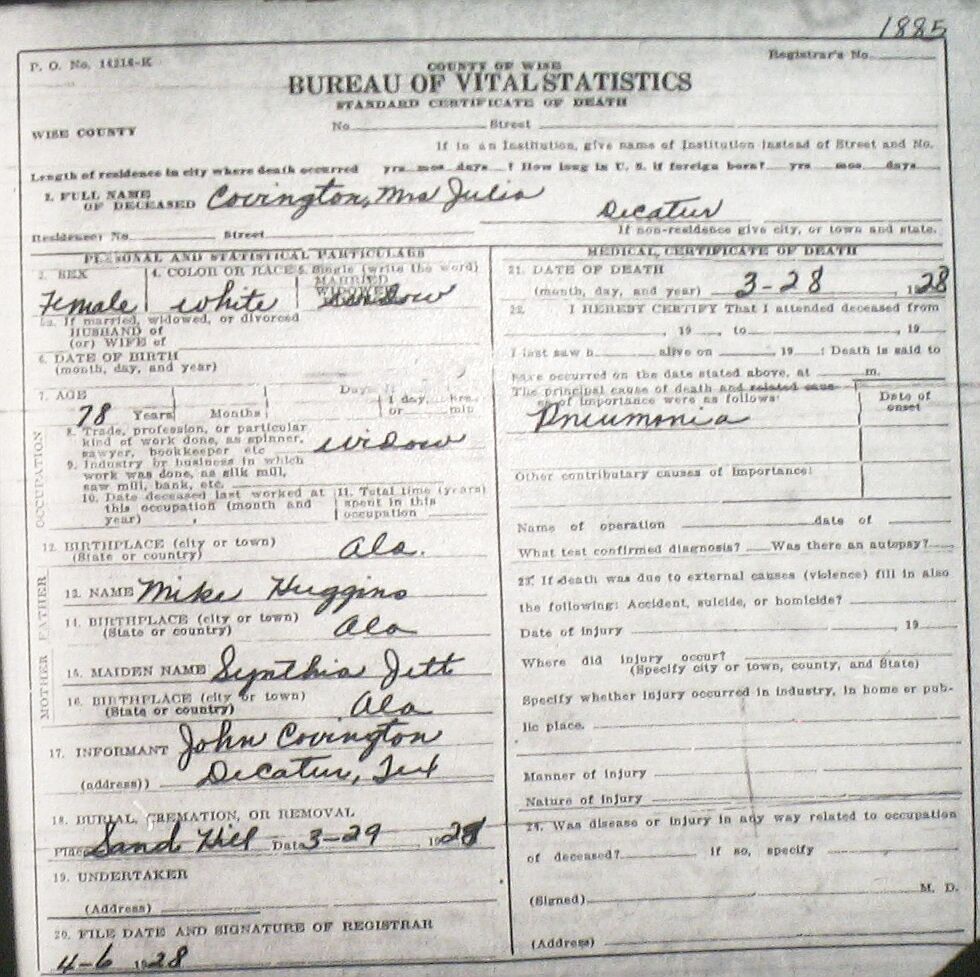 1885
P. O. No. 14214-K
Registrar's No.
COUNTY OF WISE
BUREAU OF VITAL STATISTICS
STANDARD CERTIFICATE OF DEATH
WISE COUNTY
No. Street
If in an Institution, give name of Institution instead of Street and No.
Length of residence in city where death occurred yrs mos days ? How long in U. S. if foreign born? yrs mos days
1. FULL NAME OF DECEASED Covington, Mrs Julia
Decatur
Residence: No. Street
If non-residence give city, or town and state.
PERSONAL AND STATISTICAL PARTICULARS
3. SEX
Female
4. COLOR OR RACE
white
5. Single (write the word)
MARRIED
WIDOWED
Widow
5a. If married, widowed, or divorced
HUSBAND of
(or) WIFE of
6. DATE OF BIRTH
(month, day, and year)
7. AGE
78 Years Months Days If
1 day, hrs.
or min
OCCUPATION
8. Trade, profession, or particular
kind of work done, as spinner,
sawyer, bookkeeper etc widow
9. Industry or business in which
work was done, as silk mill,
saw mill, bank, etc.
10. Date deceased last worked at
this occupation (month and
year)
11. Total time (years)
spent in this
occupation
12. BIRTHPLACE (city or town)
(State or country) Ala.
FATHER
13. NAME Mike Huggins
14. BIRTHPLACE (city or town)
(State or country) Ala
MOTHER
15. MAIDEN NAME Synthia Jett
16. BIRTHPLACE (city or town)
(State or country) Ala
17. INFORMANT John Covington
(address)) Decatur, Tex
18. BURIAL, CREMATION, OR REMOVAL
Place Sand Hill Date 3-29 1928
19. UNDERTAKER
(Address)
20. FILE DATE AND SIGNATURE OF REGISTRAR
4-6 1928
MEDICAL CERTIFICATE OF DEATH
21. DATE OF DEATH
(month, day, and year) 3-28, 1928
22. I HEREBY CERTIFY That I attended deceased from
, 19 , to , 19
I last saw h alive on , 19 ; Death is said to
have occurred on the date stated above, at m.
The principal cause of death and related caus-
es of importance were as follows:
Date of
onset
Pneumonia
Other contributary causes of importance:
Name of operation date of
What test confirmed diagnosis? Was there an autopsy?
23. If death was due to external causes (violence) fill in also
the following: Accident, suicide, or homicide?
Date of injury , 19
Where did injury occur?
(Specify city or town, county, and State)
Specify whether injury occurred in industry, in home or pub-
lic place.
Manner of injury
Nature of injury
24. Was disease or injury in any way related to occupation
of deceased? If so, specify
(Signed) M. D.
(Address)